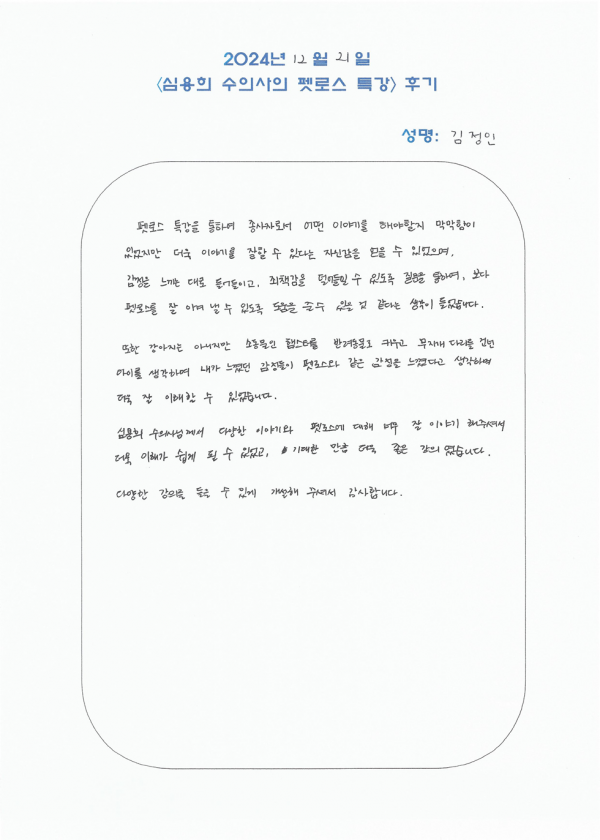 2024년 12월 21일
<심용희 수의사의 펫로스 특강> 후기
성명: 김정인
펫로스 특강을 통하여 종사자로서 어떤 이야기를 해야할지 막막함이
있었지만 더욱 이야기를 잘할 수 있다는 자신감을 얻을 수 있었으며,
감정을 느끼는 대로 들어들이고, 죄책감을 덜어들일 수 있도록 질문을 통하여, 보다
펫로스를 잘 이겨 낼 수 있도록 도움을 줄 수 있을 것 같다는 생각이 들었습니다.
또한 강아지는 아니지만 소동물인 햄스터를 반려동물로 키우고 무지개 다리를 건넌
아이를 생각하며 내가 느꼈던 감정들이 펫로스와 같은 감정을 느꼈다고 생각하여
더욱 잘 이해할 수 있었습니다.
심용희 수의사님께서 다양한 이야기와 펫로스에 대해 너무 잘 이야기 해주셔서
더욱 이해가 쉽게 될 수 있었고, 기대한 만큼 더욱 좋은 강의 였습니다.
다양한 강의를 들을 수 있게 개설해 주셔서 감사합니다.